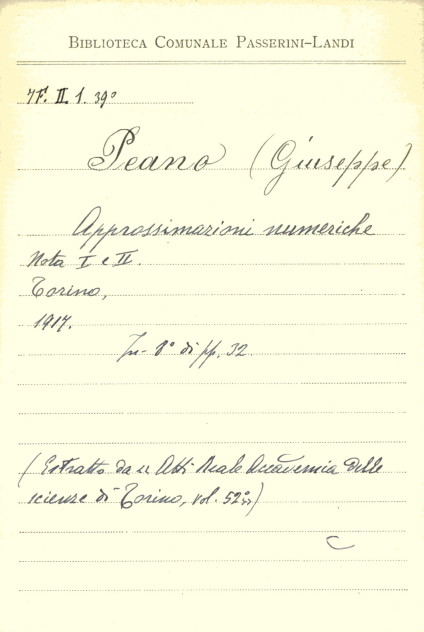 BIBLIOTECA COMUNALE PASSERINI-LANDI
7F. II. 1. 39°
Peano (Giuseppe)
Approssimazioni numeriche
Nota I e II.
Torino,
1917.
In-8° di pp. 32.
(Estratto da « Atti Reale Accademia delle
scienze di Torino, vol. 52° »)
C